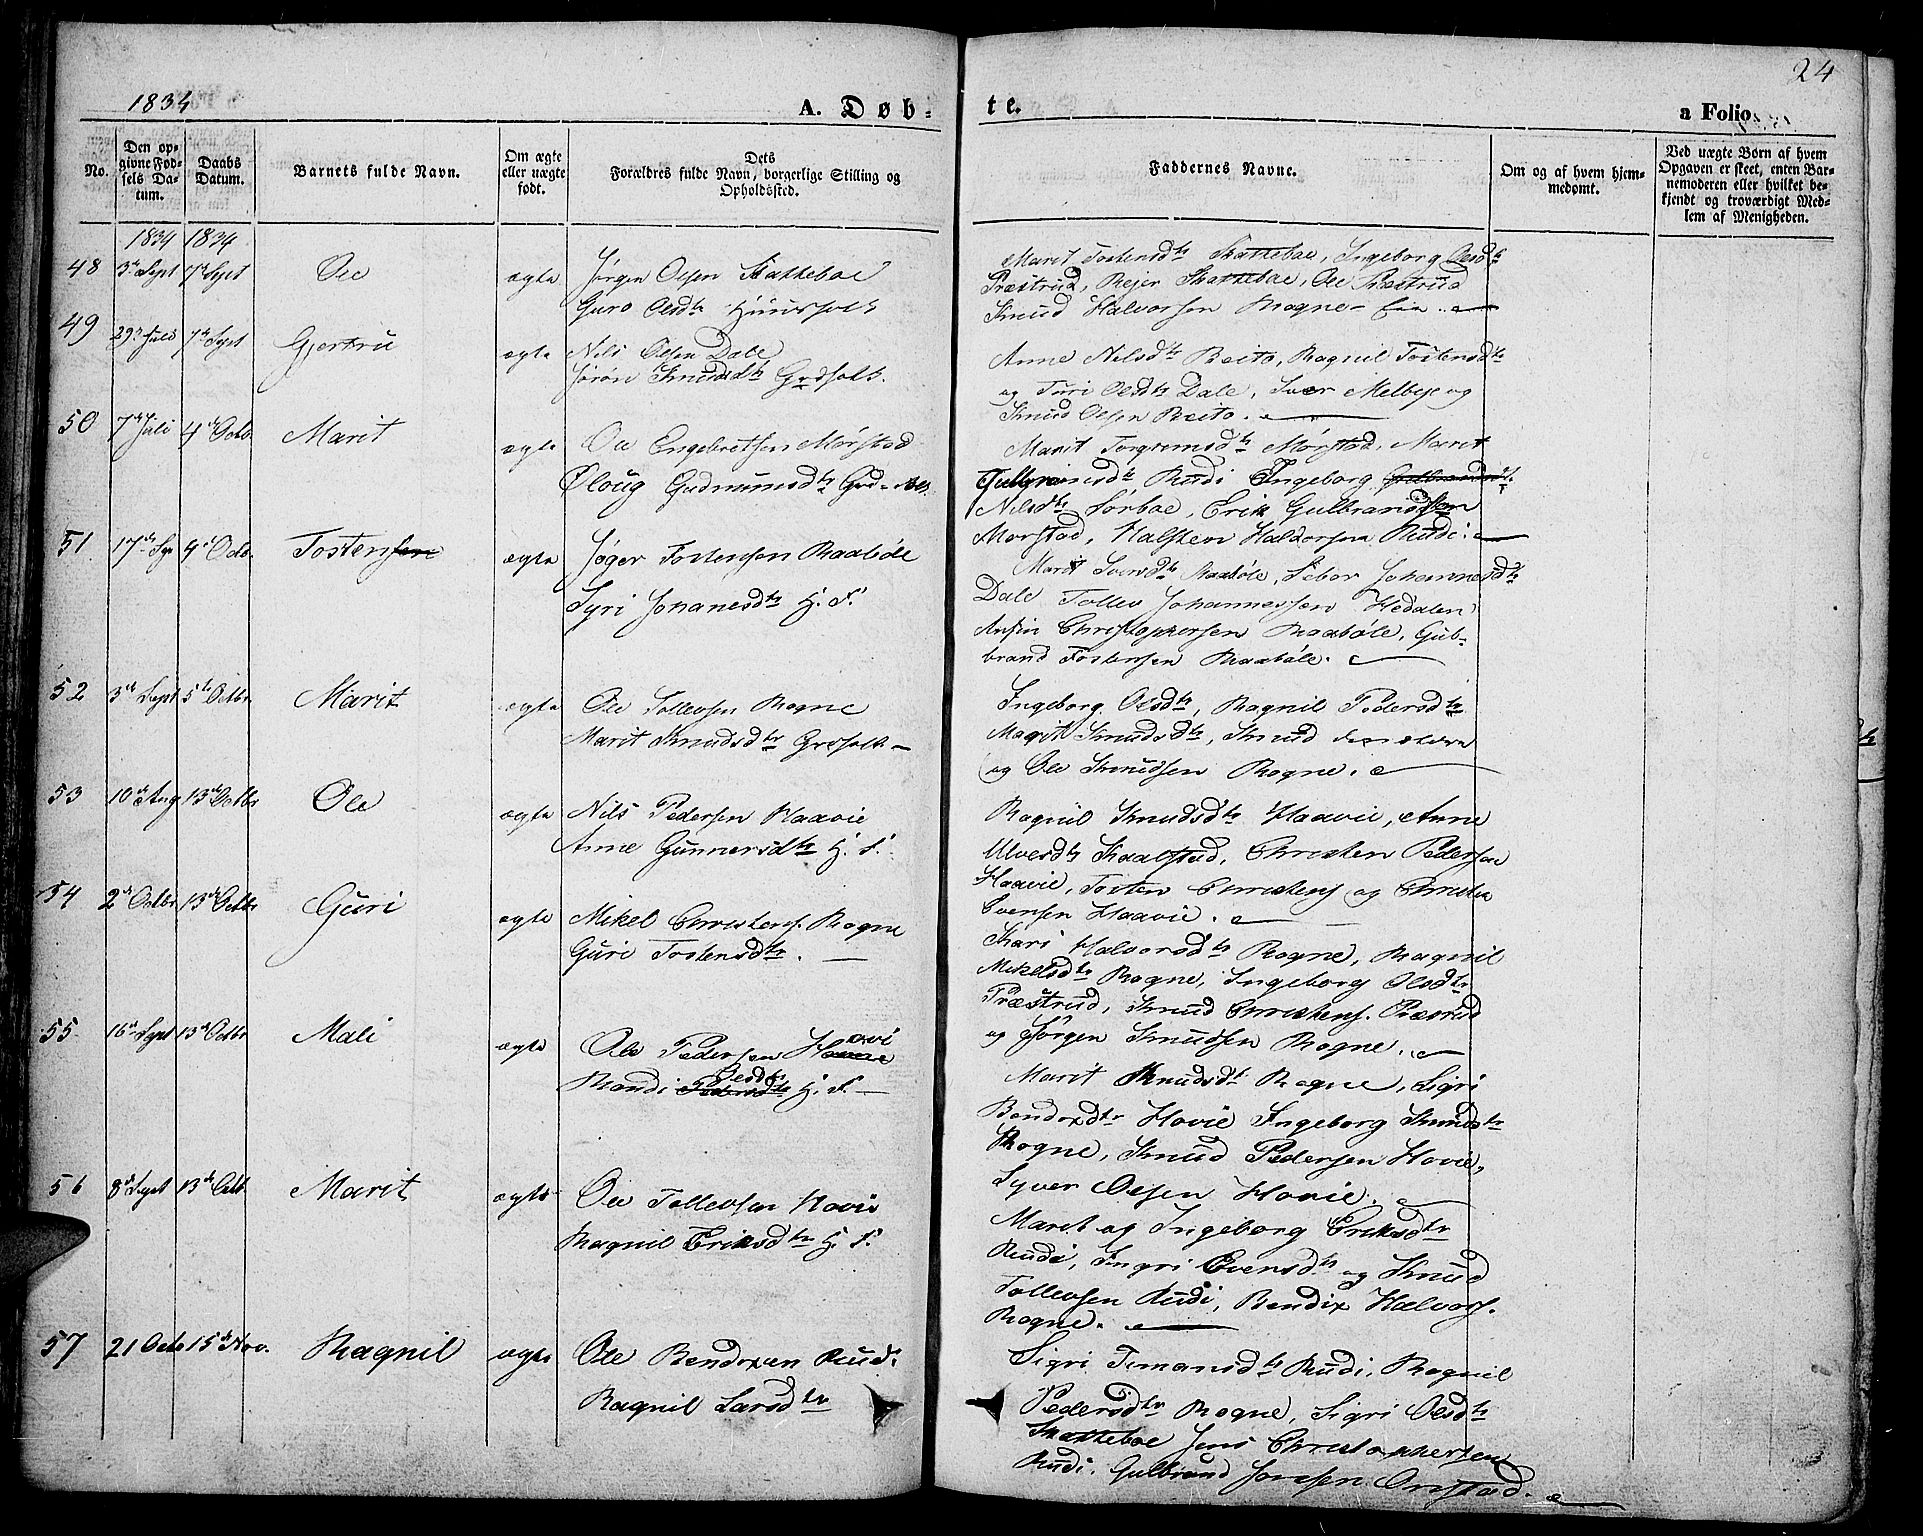 1834
A. Døb-
te.
a Folio
24
No.
Den op-
givne Fød-
sels Da-
tum.
Daabs
Datum.
Barnets fulde Navn.
Om ægte
eller uægte
født.
Dets
Forældres fulde Navn, borgerlige Stilling og
Opholdssted.
Faddernes Navne.
Om og af hvem hjem-
medømt.
Ved uægte Børn af hvem
Opgaven er skeet, enten Bar-
nemoderen eller hvilket be-
kjendt og troværdigt Med-
lem af Menigheden.
1834 1834
48 3de Sept 7de Sept Ole ægte Jørgen Olsen Skatteboe
Guro Olsdtr Huusfolk
Marit Tostensdtr Skatteboe, Ingeborg Olsdtr
Præstrud, Rejer Skatteboe, Ole Præstrud
Knud Halvorsen Rogne-Eie
49 29de Juli 7de Sept Gjertru ægte Nils Olsen Dale
Jørøn Knudsdtr Grdfolk.
Anne Nilsdtr Beito, Ragnil Tostensdtr
og Turi Olsdtr Dale, Iver Melbye og
Knud Olsen Beito.
50 7de Juli 4de Octb. Marit ægte Ole Engebretsen Mørstad
Oloug Gudmunsdtr Grd-
Marit Torgrimsdtr Mørstad, Marit
Gulbransdtr Rudi Ingeborg
Nilsdtr Sørboe, Erik Gulbrandsen
Mørstad, Halsten Haldorsen Rudi.
51 17de Sep 4de Octo. Tosten ægte Jøger Tostensen Raabøle
Syri Johanesdtr H. F.
Marit Iversdtr Raabøle, Sebor Johannesdtr
Dale Tollev Johannessen Hedalen
Anfin Christophersen Raabøle, Gul-
brand Tostensen Raabøle.
52 3de Sept 5te Octbr. Marit ægte Ole Tollevsen Rogne
Marit Knudsdtr Grdfolk
Ingeborg Olsdtr, Ragnil Pedersdtr
Magrit Knudsdtr, Knud den eldre
og Ole Knudsen Rogne.
53 10de Aug 13de Octbr Ole ægte Nils Pedersen Haavie
Anne Gunnersdtr H. F.
Ragnil Knudsdtr Haavie, Anne
Ulvesdtr Skaalstad, Christen Pedersen
Haavie, Tosten Christens. og Christen
Evensen Haavie.
54 2de Octbr 13de Octbr Guri ægte Mikel Christens. Rogne
Guri Tostensdtr.
Kari Halvorsdtr Rogne, Ragnil
Mikelsdtr Rogne, Ingeborg Olsdtr
Præstrud, Knud Christens. Præstrud
og Jørgen Knudsen Rogne.
55 16de Sept 13de Octbr Mali ægte Ole Pedersen Hovi
Randi Olesdtr H. F.
Marit Knudsdt. Rogne, Sigri
Bendixdtr Hovie Ingeborg Knudsdtr
Rogne, Knud Pedersen Hovie,
Syver Olsen Hovie.
56 8de Sept 13de Octb Marit ægte Ole Tollevsen Hovie
Ragnil Eriksdtr H. F.
Marit og Ingeborg Eriksdtr
Rudi, Ingri Evensdtr og Knud
Tollevsen Rudi, Bendix Halvors.
Rogne.
57 21 Octo 15de Nov. Ragnil ægte Ole Bendixen Rudi
Ragnil Larsdtr
Sigri Timansdtr Rudi, Ragnil
Pedersdtr Rogne, Sigri Olsdtr
Skattebøe Jens Christophersen
Rudi, Gulbrand Jonsen Onstad.